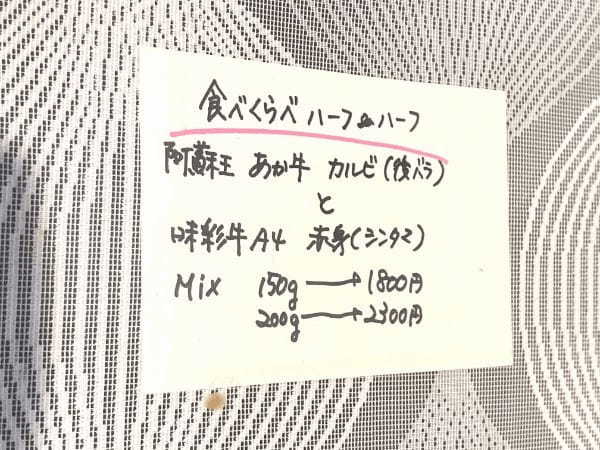 食べくらべ ハーフ&ハーフ
阿蘇王 あか牛 カルビ(後バラ)
と
味彩牛 A4 赤身(シンタマ)
Mix 150g → 1800円
200g → 2300円